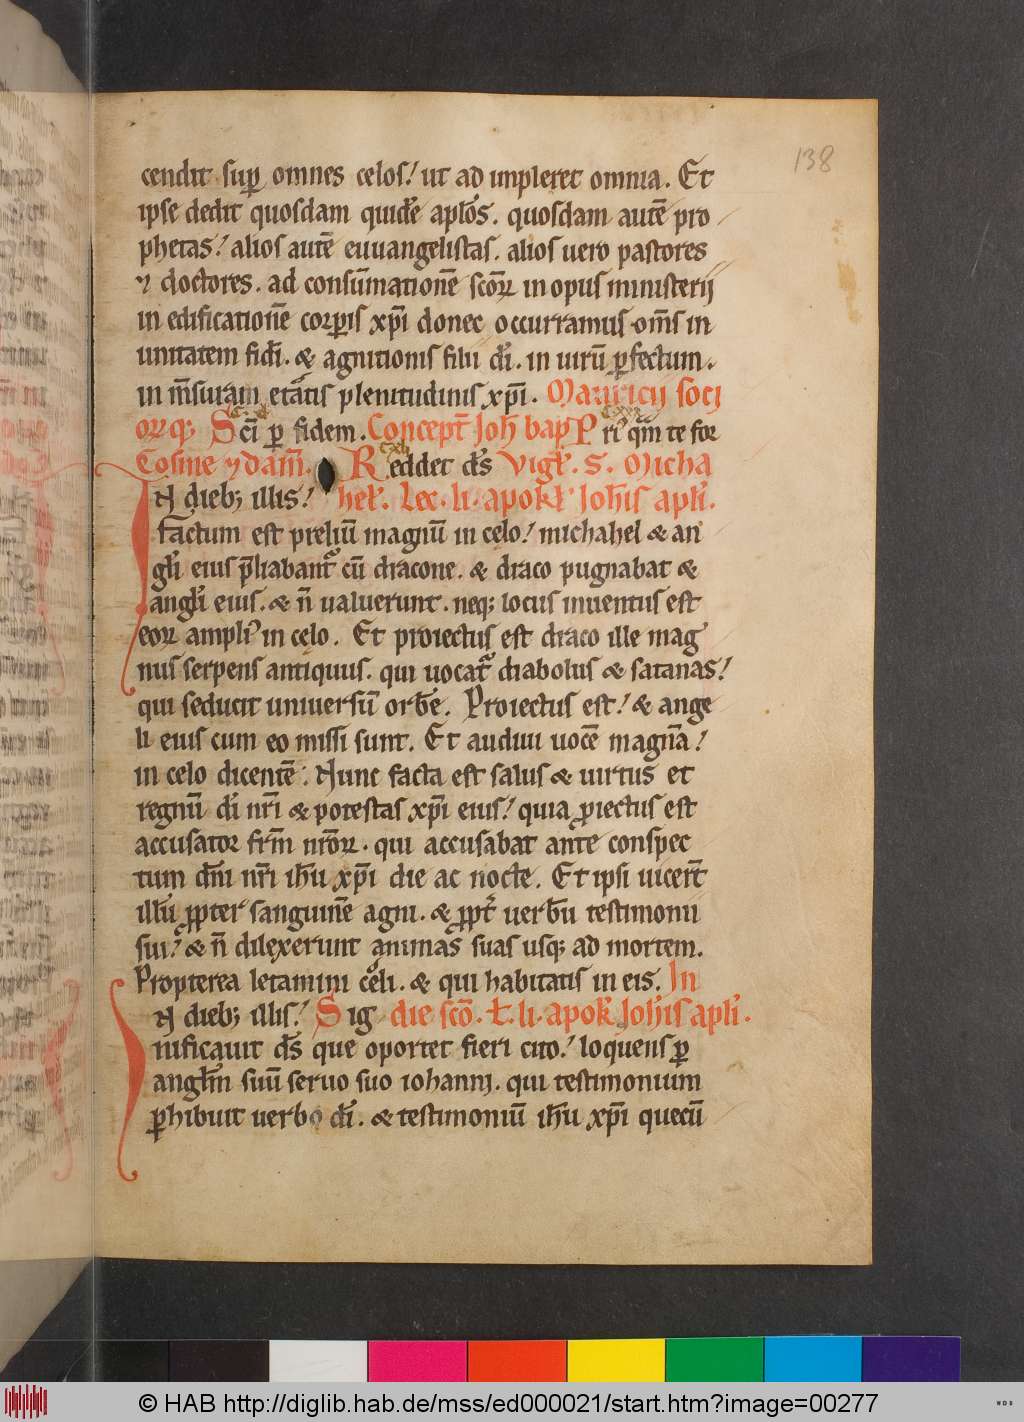 138
cendit sup̱ omnes celos! ut ad impleret omnia. Et
ipse dedit quosdam quidē apl̄os. quosdam autē pro
phetas! alios autē euuangelistas. alios uero pastores
⁊ doctores. ad consūmationē sc̄oꝝ in opus ministerij
in edificationē corꝑis xp̄i donec occurramus om̄s in
unitatem fidi. & agnitionis filii dī. in uirū ꝑfectum.
in m̄suram etatis plenitudinis xp̄i. Mauricij socj
orꝝ qꝫ Scī ꝑ fidem. Concept̄ Joh̄ bap̄ Pri qm̄ te for
Cosme ⁊ dam̄. Reddet ds̄ Vigl̄. S. Micha
N diebꝫ illis! hel̄. Lec. li. apok̄ Joh̄is apl̄i.
factum est preliū magnū in celo! michahel & an
gl̄i eius p̄liabant᷑ cū dracone. & draco pugnabat &
angl̄i eius. & n̄ ualuerunt. neqꝫ locus inuentus est
eoꝝ ampliꝰ in celo. Et proiectus est draco ille mag
nus serpens antiquus. qui uocat᷑ diabolus & satanas!
qui seducit uniuersū orbē. Proiectus est! & ange
li eius cum eo missi sunt. Et audiui uocē magnā!
in celo dicentē. Nunc facta est salus & uirtus et
regnū dī nr̄i & potestas xp̄i eius! quia ꝓiectus est
accusator fr̄m nr̄oꝝ. qui accusabat ante conspec
tum dn̄i nr̄i ih̄u xp̄i die ac nocte. Et ipsi uicer̄t
illū ꝓpter sanguinē agni. & ꝓpt̄ uerbū testimonii
sui! & n̄ dilexerunt animas suas usqꝫ ad mortem.
Propterea letamini celi. & qui habitatis in eis. In
N diebꝫ illis! Sig die sc̄o. Ł. li. apok̄ Joh̄is apl̄i.
nificauit ds̄ que oportet fieri cito! loquens ꝑ
angl̄m suū seruo suo iohanni. qui testimonium
ꝑhibuit uerbo dī. & testimoniū ih̄u xp̄i quecū
© HAB http://diglib.hab.de/mss/ed000021/start.htm?image=00277